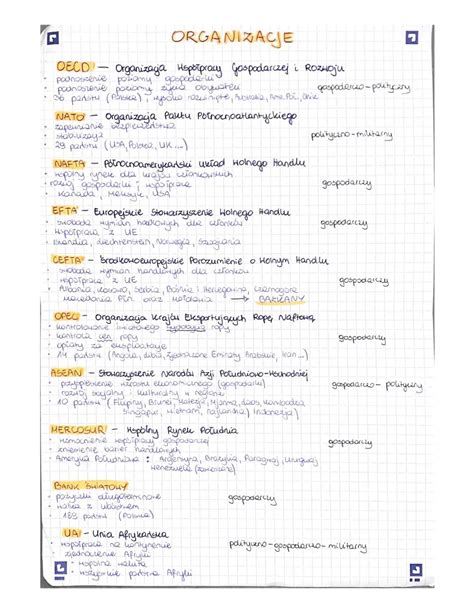 ORGANIZACJE
OECD – Organizacja Współpracy Gospodarczej i Rozwoju
• podnoszenie poziomu gospodarki
• podnoszenie poziomu życia obywateli gospodarczo-polityczny
• 36 państw (Polska),
NATO – Organizacja Paktu Północnoatlantyckiego
• zapewnianie bezpieczeństwa
• stabilizacja polityczno-militarny
• 29 państw (USA, Polska, UK...)
NAFTA – Północnoamerykański Układ Wolnego Handlu
• wspólny rynek dla krajów członkowskich
• rozwój gospodarki i współpraca gospodarczy
• Kanada, Meksyk, USA
EFTA – Europejskie Stowarzyszenie Wolnego Handlu
• swoboda wymian handlowych dla członków gospodarczy
• współpraca z UE
• Islandia, Liechtenstein, Norwegia, Szwajcaria
CEFTA – Środkowoeuropejskie Porozumienie o Wolnym Handlu
• swoboda wymian handlowych dla członków
• współpraca z UE gospodarczy
• Albania, Kosovo, Serbia, Bośnia i Hercegowina, Czarnogóra
Macedonia Płn. oraz Mołdawia → BAŁKANY
OPEC – Organizacja Krajów Eksportujących Ropę Naftową
• kontrolowanie światowego wydobycia ropy
• kontrola cen ropy gospodarczy
• opłaty za eksploatację
• 14 państw (Angola, Libia, Zjednoczone Emiraty Arabskie, Iran...)
ASEAN – Stowarzyszenie Narodów Azji Południowo-Wschodniej
• przyspieszenie wzrostu ekonomicznego (gospodarki) gospodarczo-polityczny
• rozwój socjalny i kulturalny w regionie
• 10 państw (Filipiny, Brunei, Malezja, Mjanma, Laos, Kambodża
Singapur, Wietnam, Tajlandia, Indonezja)
MERCOSUR – Wspólny Rynek Południa
• wzmocnienie współpracy gospodarczej gospodarczy
• zniesienie barier handlowych
• Ameryka Południowa: Argentyna, Brazylia, Paragwaj, Urugwaj
Wenezuela
BANK ŚWIATOWY
• pożyczki długoterminowe gospodarczy
• walka z ubóstwem
• 189 państw (Polska)
UA – Unia Afrykańska
• współpraca na kontynencie polityczno-gospodarczo-militarny
• zjednoczenie Afryki
• wspólna waluta
• wszystkie państwa Afryki